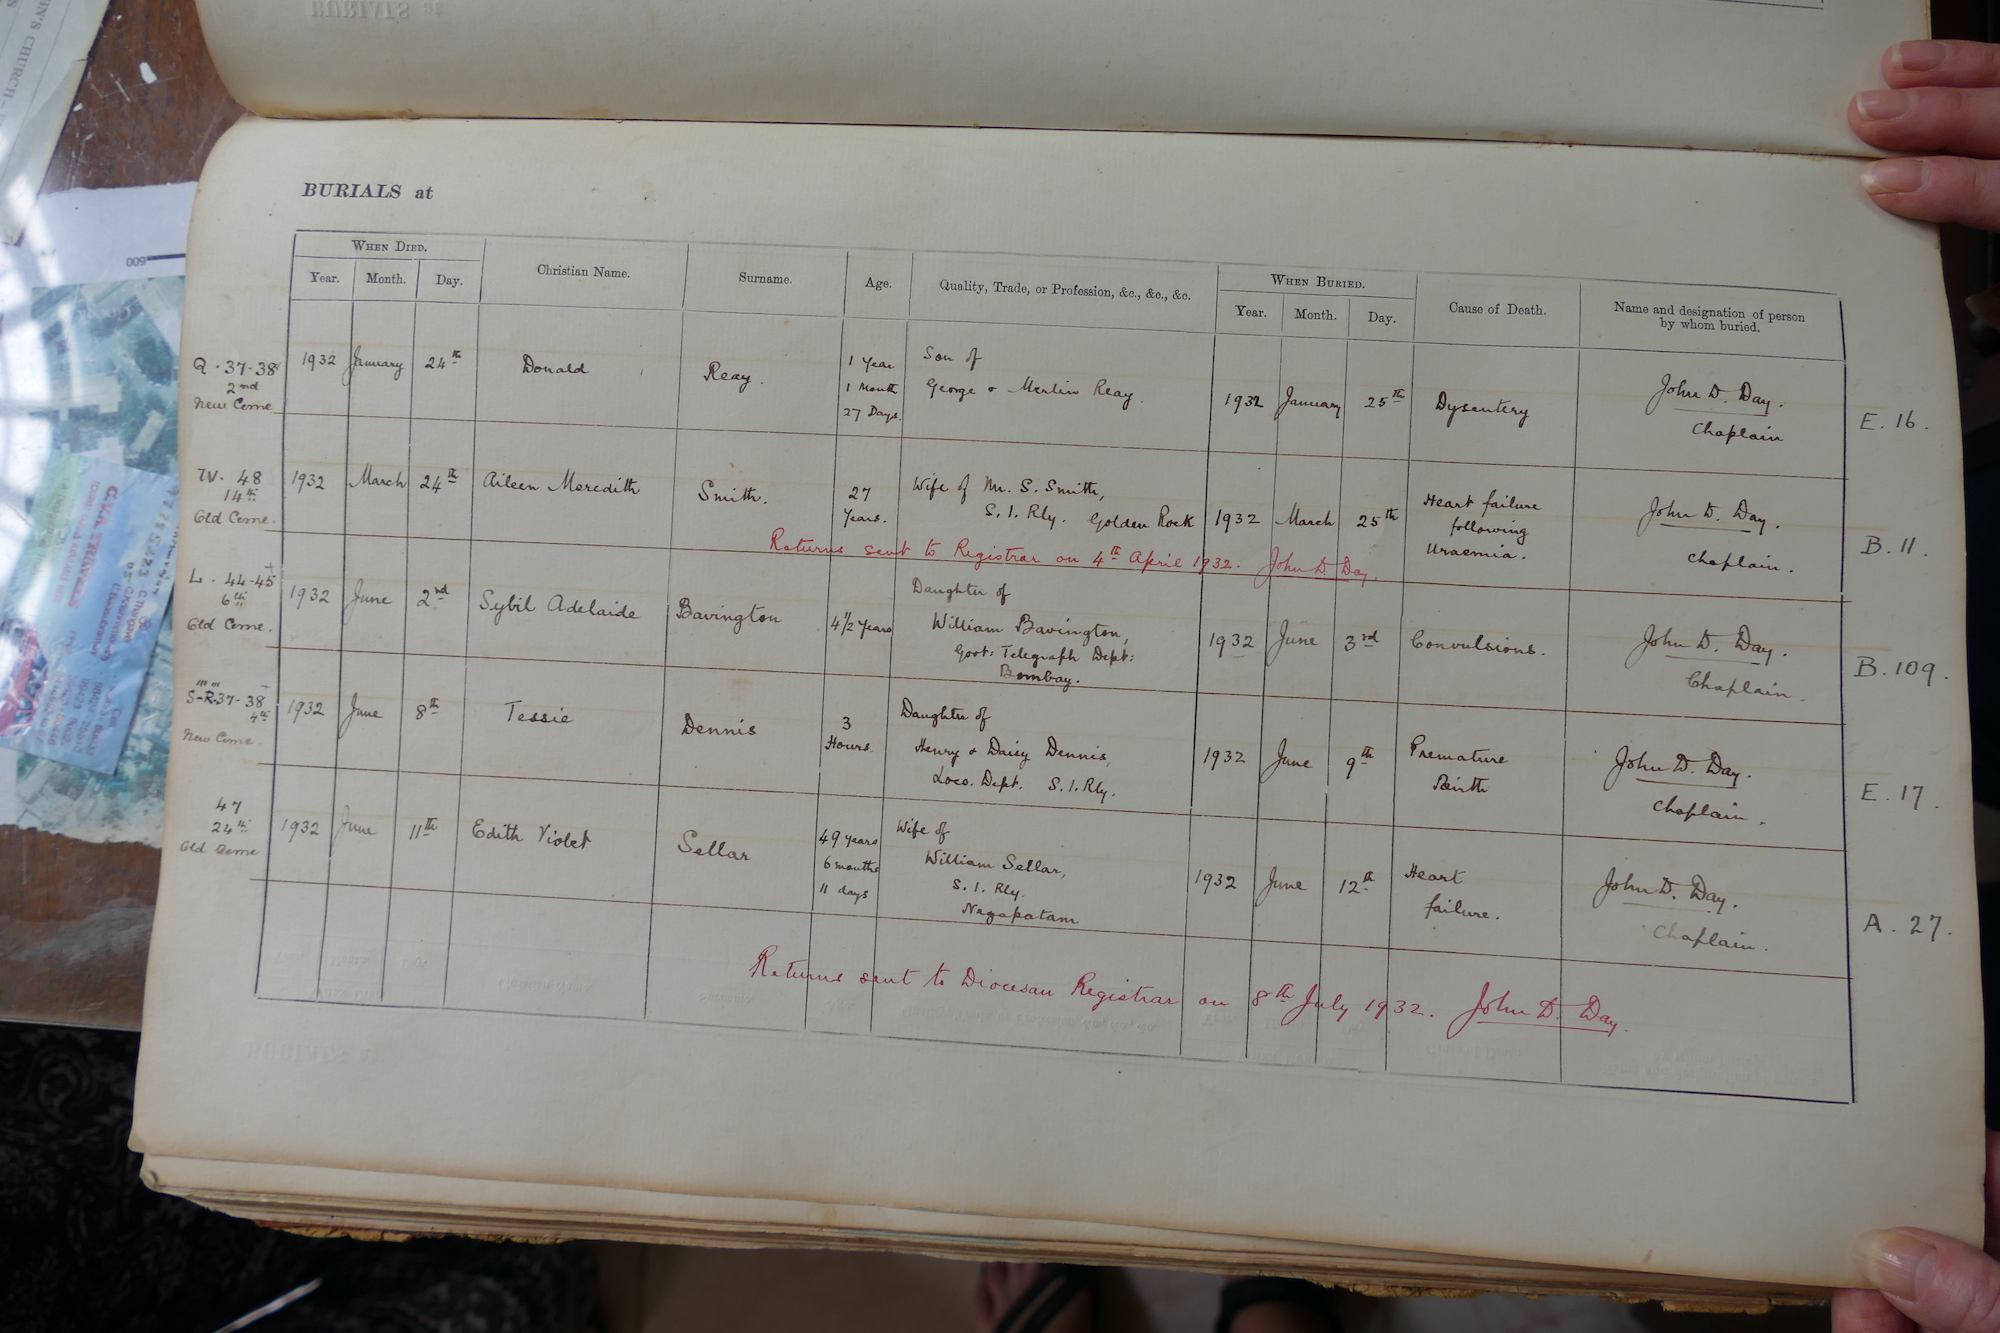 BURIALS at
WHEN DIED.
Year.
Month.
Day.
Christian Name.
Surname.
Age.
Quality, Trade, or Profession, &c., &c., &c.
WHEN BURIED.
Year.
Month.
Day.
Cause of Death.
Name and designation of person
by whom buried.
Q. 37-38
2nd
New Ceme
1932
January
24th
Donald
Reay.
1 Year
1 Month
27 Days.
Son of
George & Merlin Reay.
1932
January
25th
Dysentery
John D. Day.
Chaplain
E. 16.
W. 48
14th
Old Ceme.
1932
March
24th
Aileen Meredith
Smith.
27
Years.
Wife of Mr. S. Smith,
S. I. Rly. Golden Rock
1932
March
25th
Heart failure
following
Uraemia.
John D. Day.
Chaplain.
B. 11.
Returns sent to Registrar on 4th April 1932. John D Day.
L. 44-45
6th
Old Ceme.
1932
June
2nd
Sybil Adelaide
Bavington
4 1/2 Years
Daughter of
William Bavington,
Govt: Telegraph Dept:
Bombay.
1932
June
3rd
Convulsions.
John D. Day.
Chaplain.
B. 109.
S-R. 37-38
4th
New Ceme.
1932
June
8th
Tessie
Dennis
3
Hours.
Daughter of
Henry & Daisy Dennis,
Loco. Dept. S. I. Rly.
1932
June
9th
Premature
Birth
John D. Day.
Chaplain.
E. 17.
47
24th
Old Ceme
1932
June
11th
Edith Violet
Sellar
49 years
6 months
11 days
Wife of
William Sellar,
S. I. Rly.
Negapatam
1932
June
12th
Heart
failure.
John D. Day.
Chaplain.
A. 27.
Returns sent to Diocesan Registrar on 8th July 1932. John D. Day.